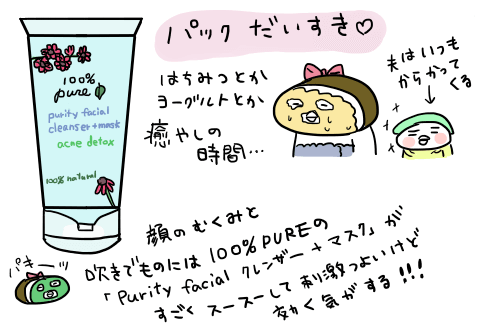 パック だいすき♡
はちみつとか
ヨーグルトとか
癒やしの
時間…
夫はいつも
からかって
くる
100%
pure
purity facial
cleanser+mask
acne detox
100% natural
顔のむくみと
吹きでものには 100%PUREの
「Purity facial クレンザー+マスク」が
すごくスースーして刺激つよいけど
効く気がする!!!
パキーーッ